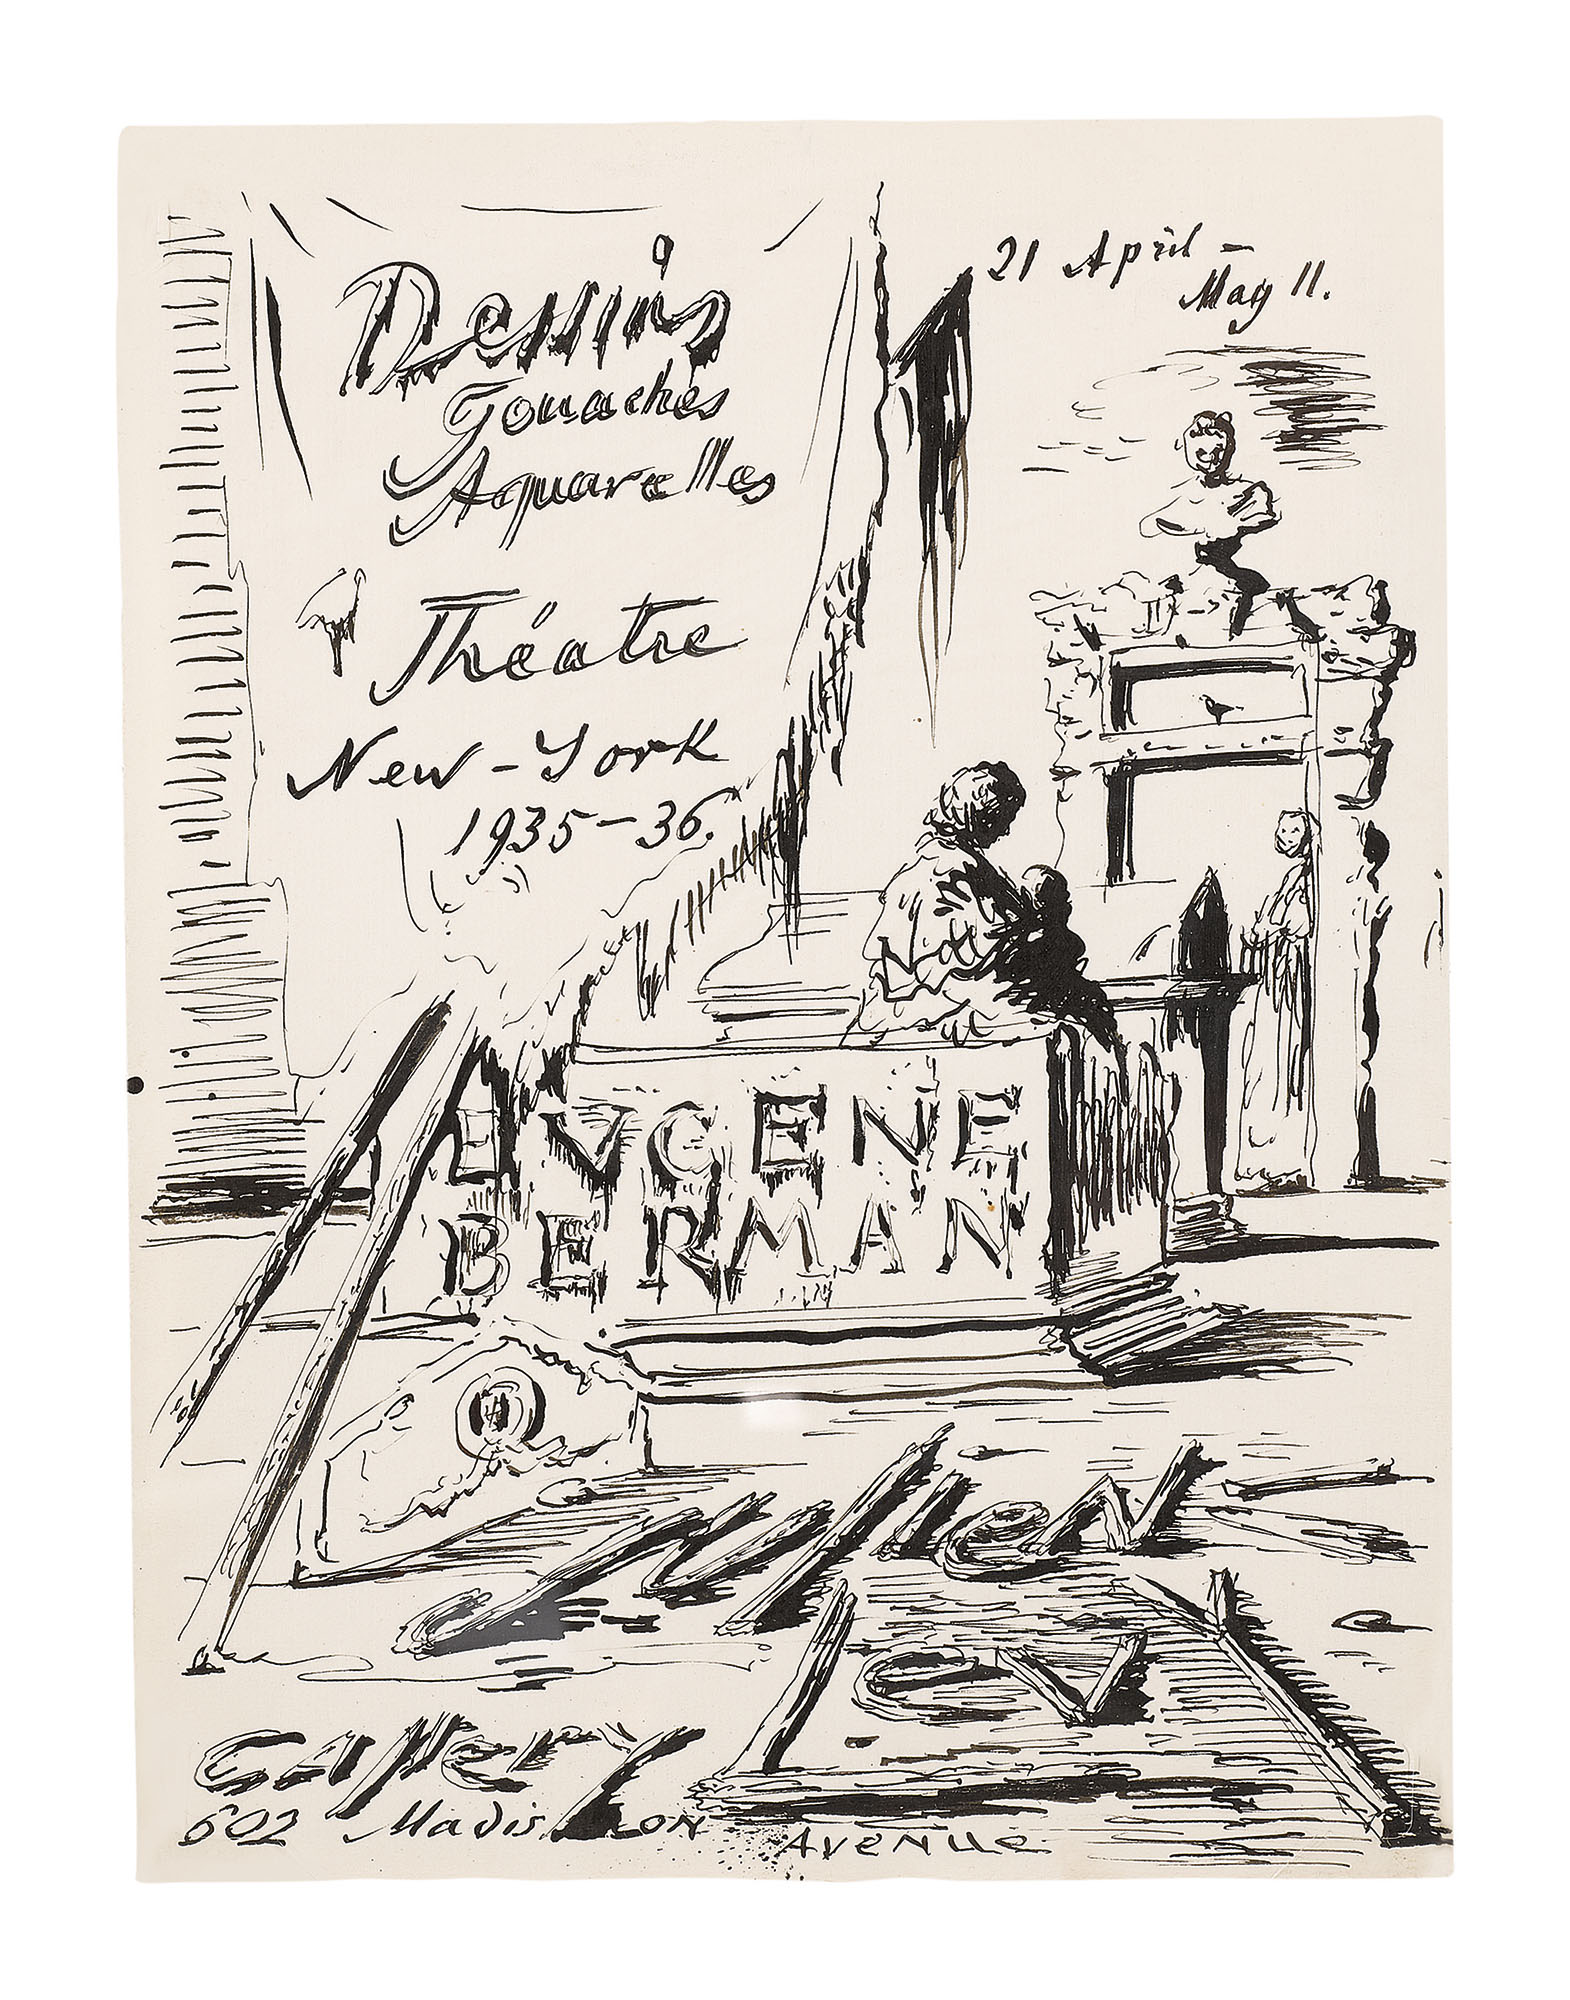 Dessins
Gouaches
Aquarelles
Théatre
New-York
1935-36.
21 April -
May 11.
EVGENE
BERMAN
Julien
Levy
Gallery
602 Madison Avenue